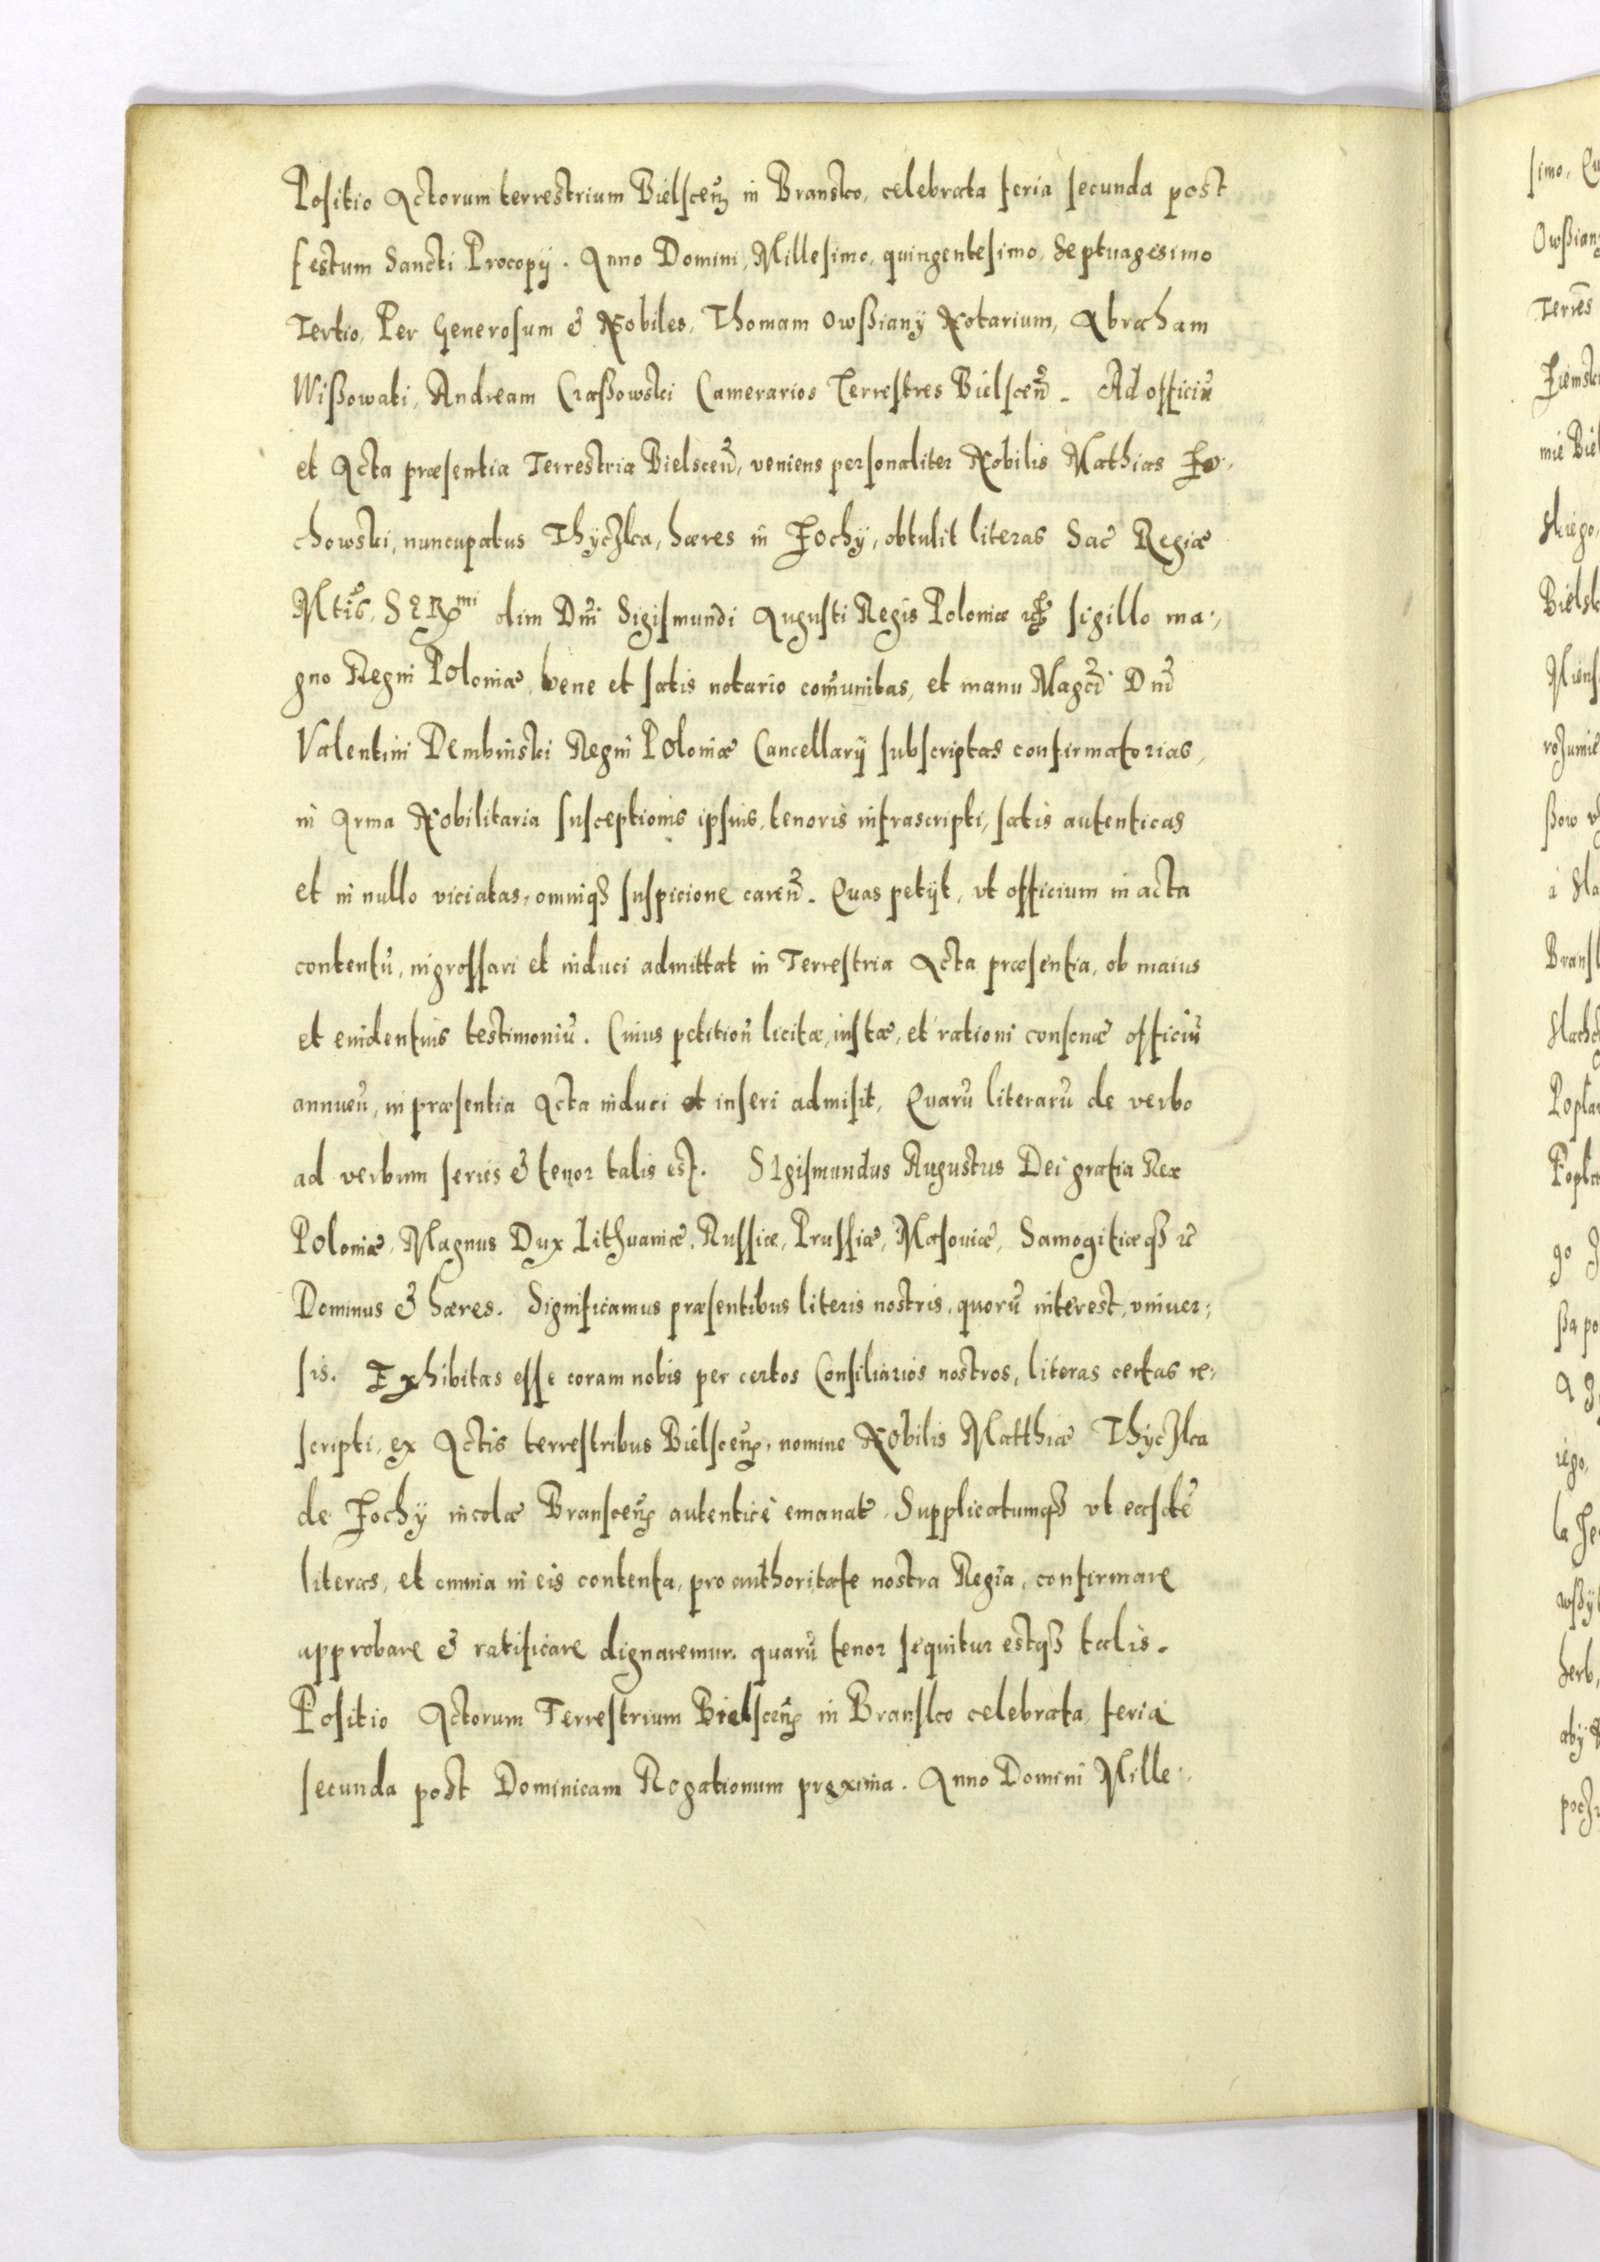 Positio Actorum terrestrium Bielsceñ in Bransko, celebrata feria secunda post
festum Sancti Procopÿ. Anno Domini, Millesimo, quingentesimo, septuagesimo
Tertio, Per Generosum & Nobiles, Thomam Owßianÿ Notarium, Abraham
Wißowati, Andream Czaßowski Camerarios Terrestres Bielsceñ. Ad officiũ
et Acta præsentia Terrestria Bielsceñ, veniens personaliter Nobilis Mathias
chowski, nuncupatus Thyczka, hæres in Fochÿ, obtulit literas Sac̃ Regiæ
Mtis̃, olim Dñi Sigismundi Augusti Regis Poloniæ sigillo ma:,
gno Regni Poloniæ, bene et satis notario com̃unitas, et manu Magc̃i Dñi
Valentini Dembinski Regni Poloniæ Cancellarÿ subscriptas confirmatorias,
in Arma Nobilitaria susceptionis ipsius, tenoris infrascripti, satis autenticas
et in nullo viciatas, omniqȝ suspicione careñ. Quas petÿt, vt officium in acta
contentũ, ingrossari et induci admittat in Terrestria Acta præsentia, ob maius
et euidentius testimoniũ. Cuius petitioñ licitæ, iustæ, et rationi consonæ officiũ
annueñ, in præsentia Acta induci et inseri admisit, Quarũ literarũ de verbo
ad verbum series & tenor talis est. SIgismundus Augustus Dei gratia Rex
Poloniæ, Magnus Dux Lithuaniæ, Russiæ, Prussiæ, Masouiæ, Samogitiæqȝ
Dominus & hæres. Significamus præsentibus literis nostris, quorũ interest, vniuer:
sis. Exhibitas esse coram nobis per certos Consiliarios nostros, literas certas re:
scripti, ex Actis terrestribus Bielsceñ, nomine Nobilis Matthiæ Thyczka
de Fochÿ incolæ Bransceñ autenticè emanat̃ Supplicatumqȝ vt easdẽ
literas, et omnia in eis contenta, pro authoritate nostra Regia, confirmare
approbare & ratificare dignaremur. quarũ tenor sequitur estqȝ talis.
Positio Actorum Terrestrium Bielsceñ in Bransko celebrata, feria
secunda post Dominicam Rogationum proxima. Anno Domini Mille: